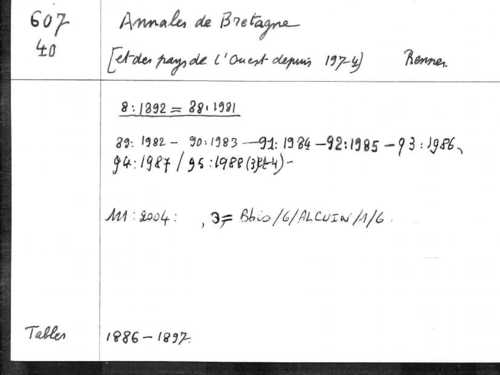 607 Annales de Bretagne
40 [et des pays de l'Ouest depuis 1974] Rennes.
8:1892 = 88:1981
89: 1982 - 90:1983 - 91:1984 - 92:1985 - 93:1986,
94:1987 / 95:1988 -
111:2004: , 3 = /6/ALCUIN/1/6.
Tables 1886-1897